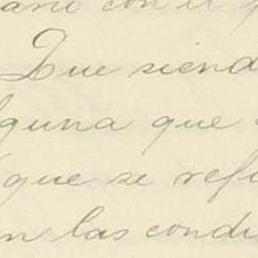 ano con el
Que siend
guna que
que se refi
n las condi